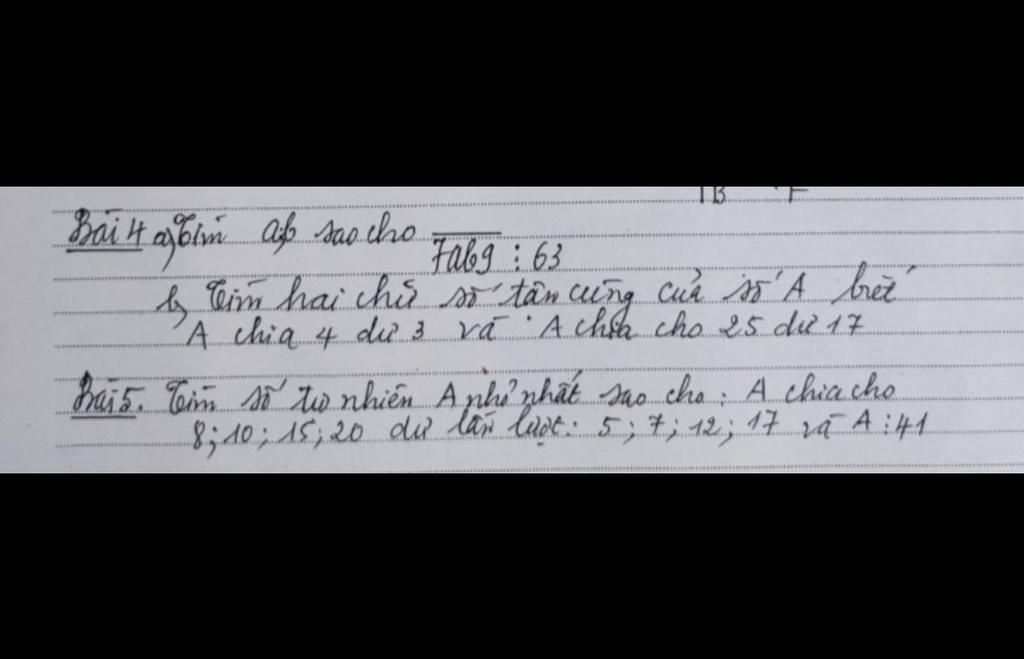 1B F
Bài 4 a, Tìm a,b sao cho 7ab9 ⋮ 63
b, Tìm hai chữ số tận cùng của số A biết
A chia 4 dư 3 và A chia cho 25 dư 17
Bài 5. Tìm số tự nhiên A nhỏ nhất sao cho: A chia cho
8; 10; 15; 20 dư lần lượt: 5; 7; 12; 17 và A ⋮ 41